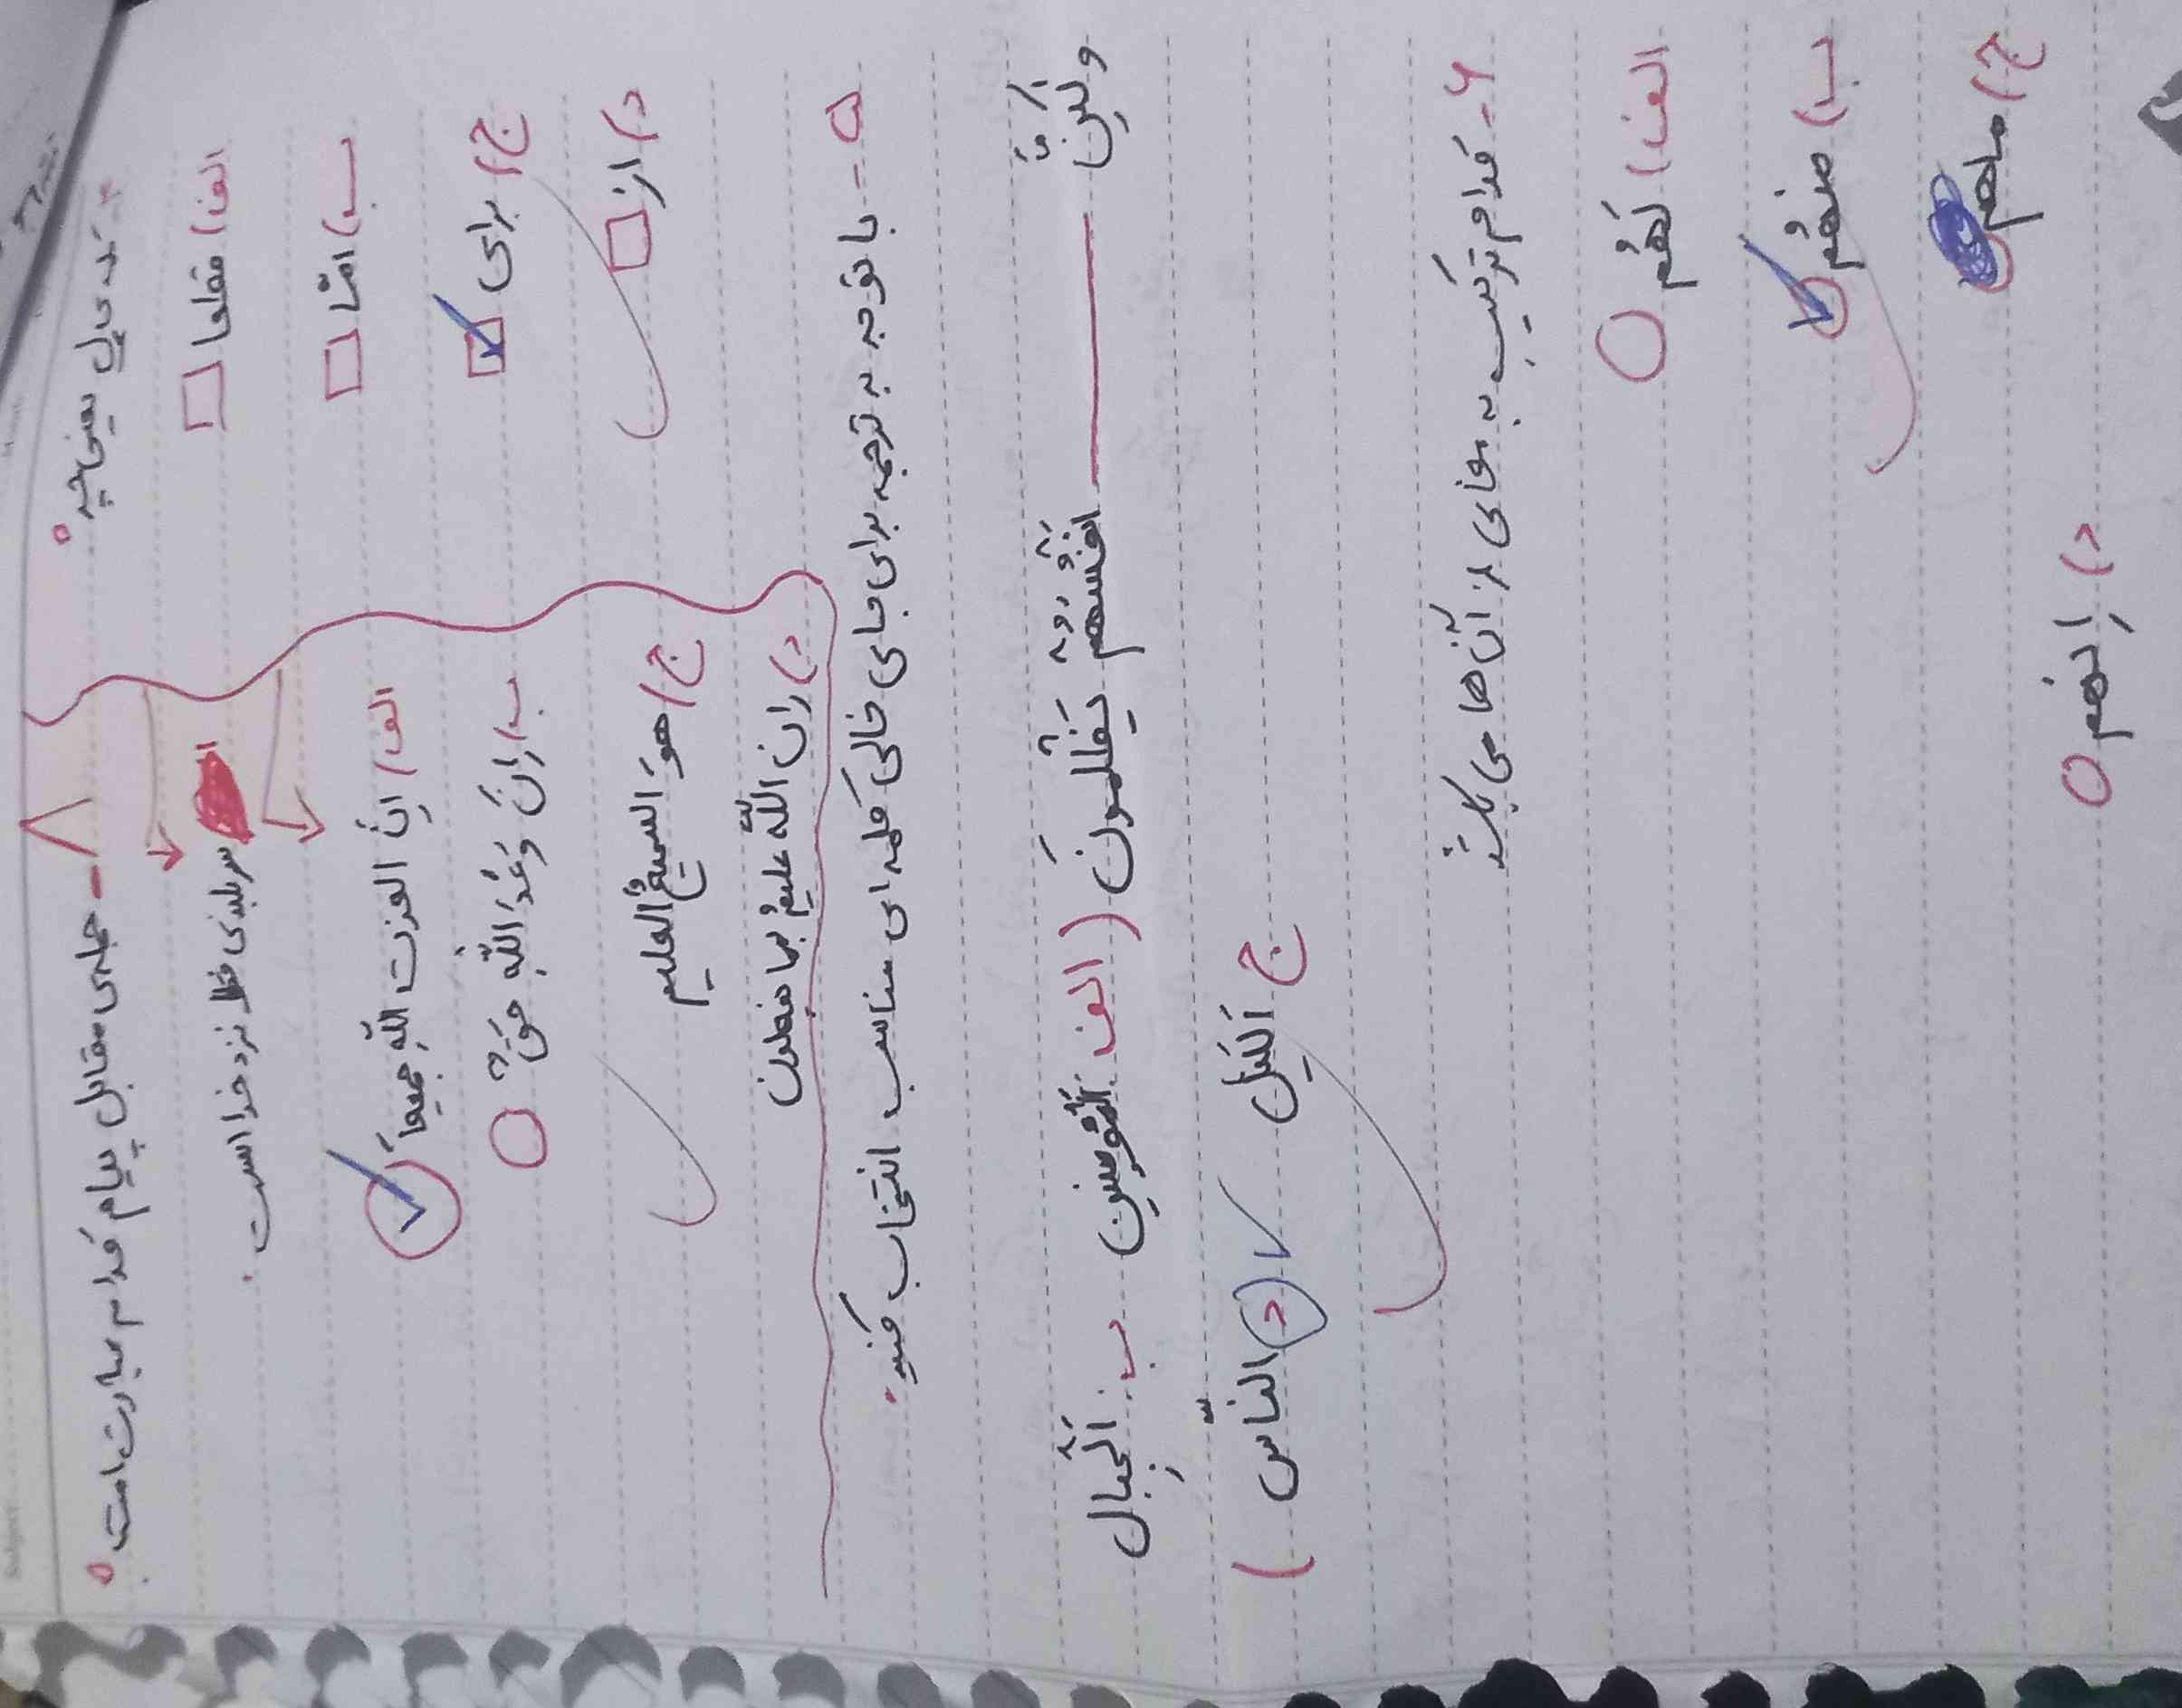 ۳- کدام یعنی چه
الف) قطعا
ب) امّا
ج) برای
د) از
۸- جمله‌ی مقابل پیام کدام عبارت است
سربلندی فقط نزد خدا است.
الف) اِنَّ العزت اللّهِ جمیعاً
ب) اِنَّ وَعْدَ اللّهِ حَقٌّ
ج) هوَ السمیعُ العلیم
د) اِن اللّه علیمٌ بما یفعلون
۵- با توجه به ترجمه برای جای خالی کلمه‌ای مناسب انتخاب کنید.
ولکِنَّ اَنْفُسَهُمْ یَظْلِمونَ (الف الْمُومِنین ب: اَلْجِبال
ج اَللَیْل د) النّاس )
۶- کدام ترکیب به معنای از آن ها می باشد
الف) لَهُم
ب) مِنهُم
ج) ملهم
د) اِلهُم